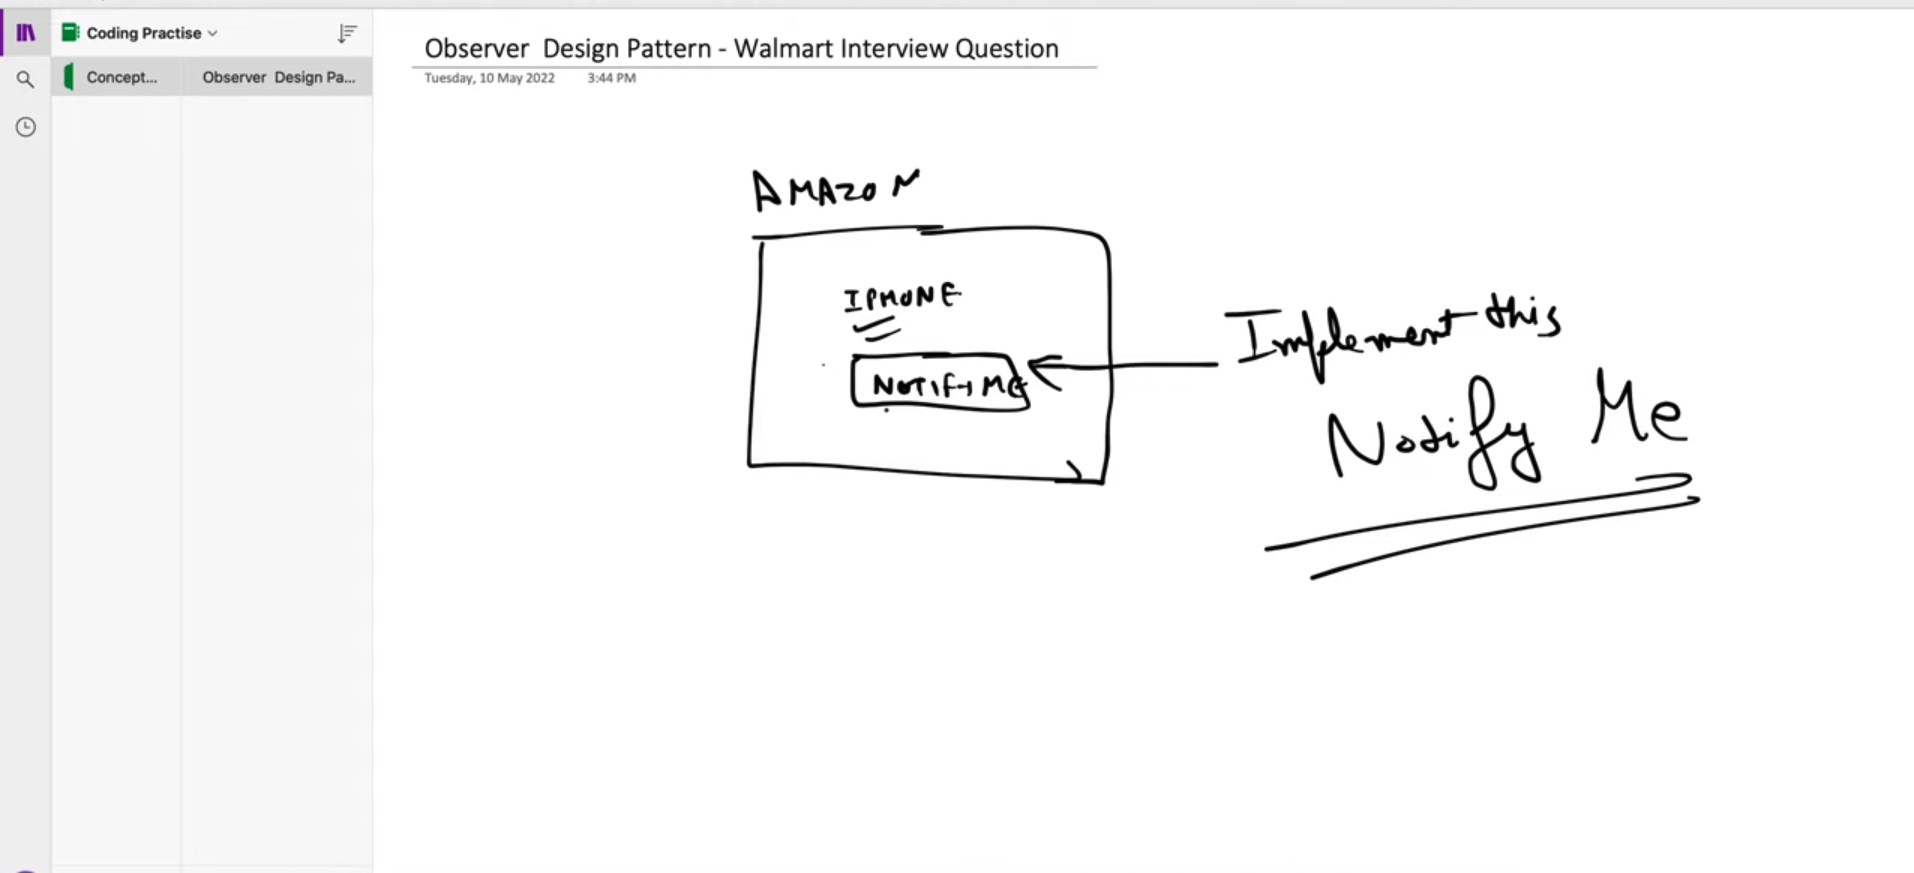 Coding Practise
Concept...
Observer Design Pa...
Observer Design Pattern - Walmart Interview Question
Tuesday, 10 May 2022 3:44 PM
AMAZON
IPHONE
NOTIFY ME
Implement this
Notify Me